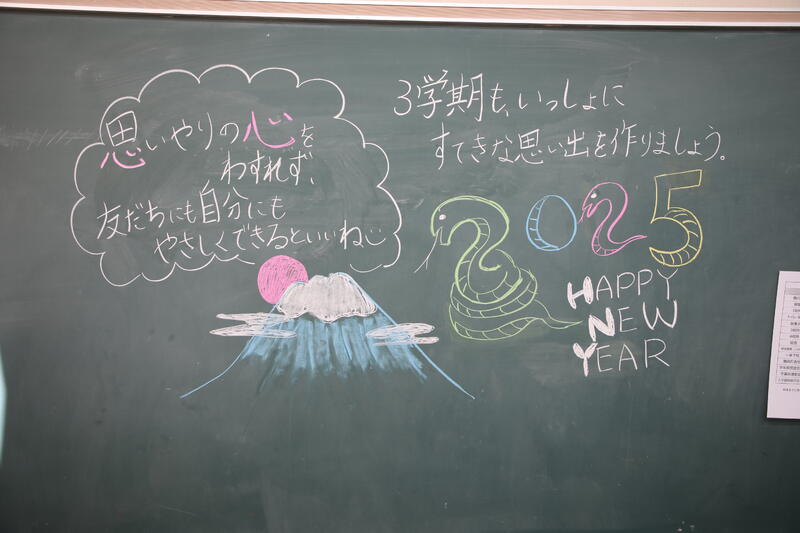 思いやりの心を
わすれず、
友だちにも自分にも
やさしくできるといいね
3学期も、いっしょに
すてきな思い出を作りましょう。
2025
HAPPY
NEW
YEAR